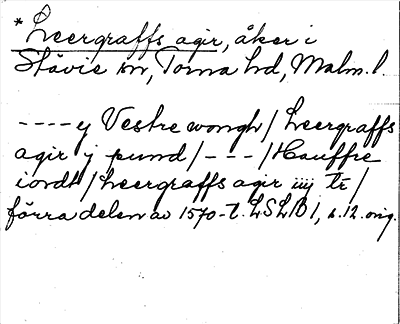 * Leergraffs agir, åker i
Stävie sn, Torna hd, Malm. l.
---- y Vestre wongh / Leergraffs
agir j pund / --- / Hauffre
iordt / Leergraffs agir iiij tr /
förra delen av 1570-t. LSLB 1, s. 12. orig.